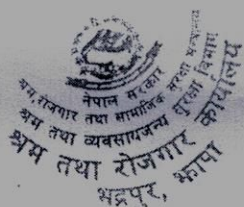 नेपाल सरकार
श्रम, रोजगार तथा सामाजिक सुरक्षा मन्त्रालय
श्रम तथा व्यवसायजन्य सुरक्षा विभाग
श्रम तथा रोजगार कार्यालय
भद्रपुर, झापा